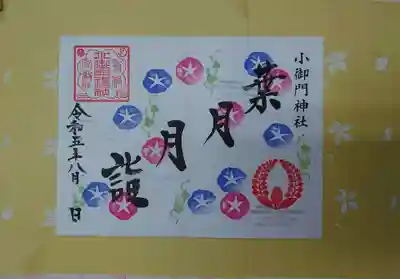 小御門神社
葉月
月詣
令和五年八月 日